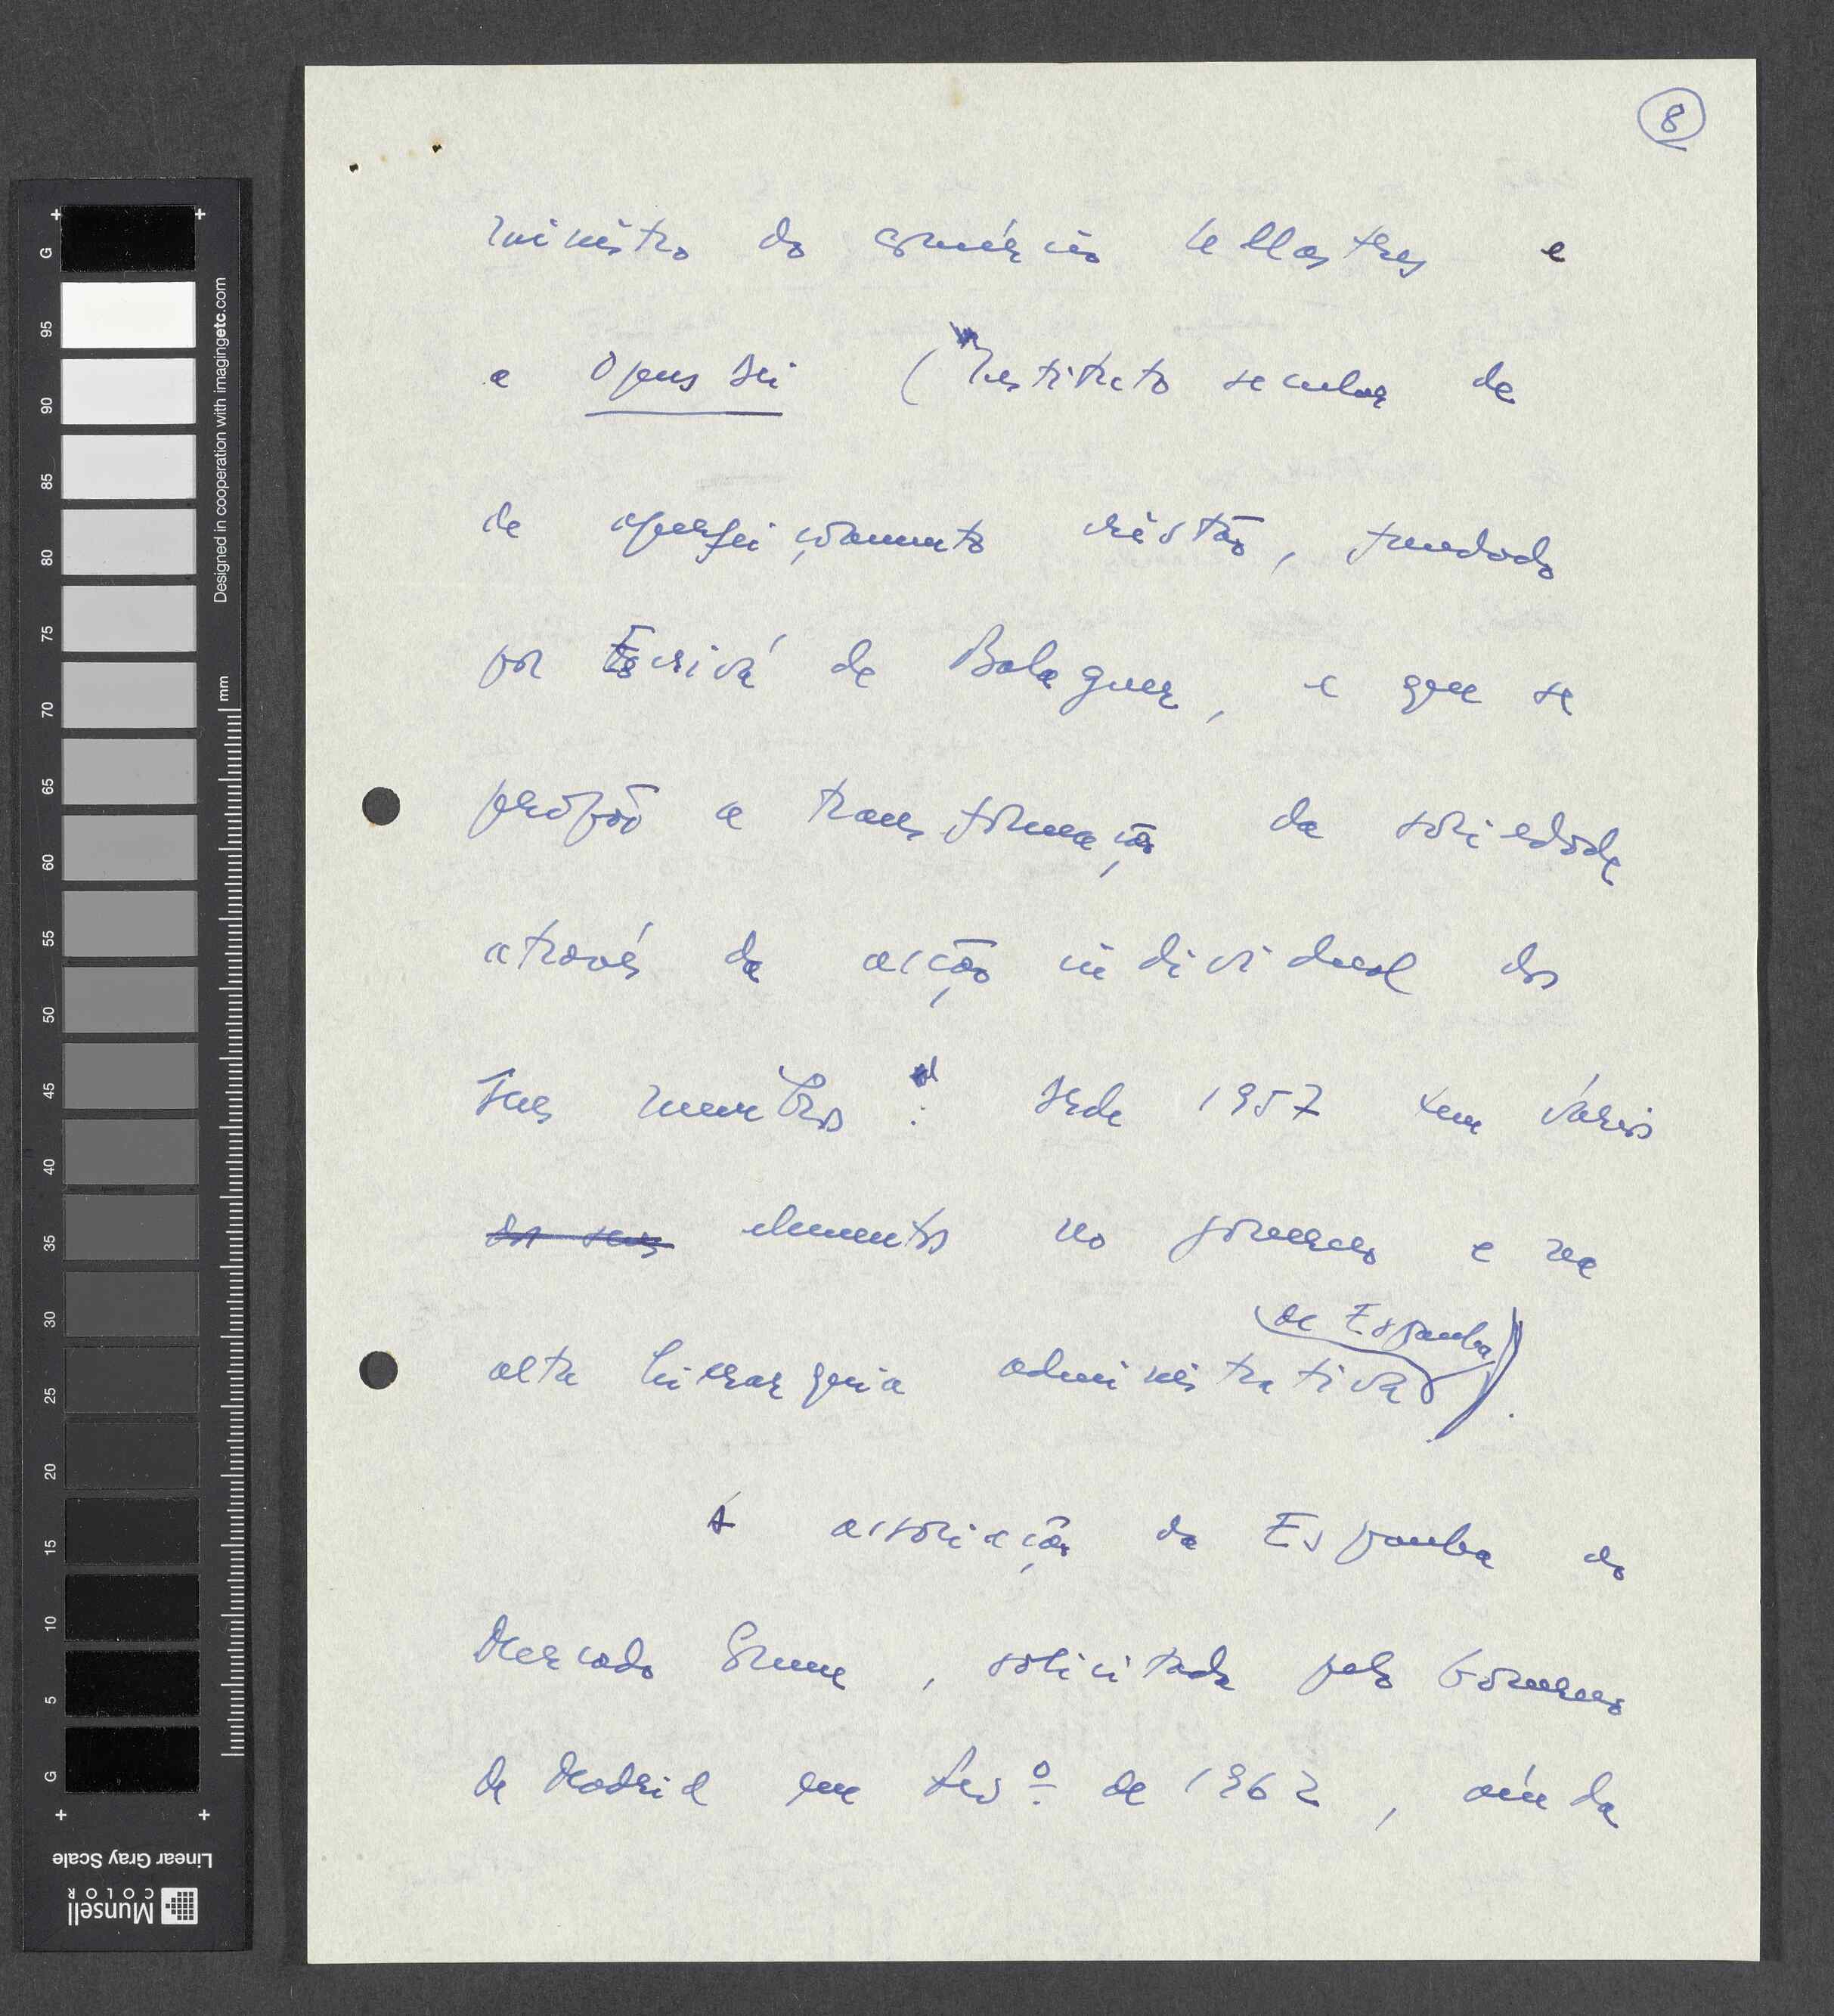 8
ministro do comércio Ullastres e
a Opus Dei (Instituto secular de
de aperfeiçoamento cristão, fundado
por Escrivá de Balaguer, e que se
propõe a transformação da sociedade
através da acção individual dos
seus membros: desde 1957 tem vários
dos seus elementos no governo e na
de Espanha)
alta hierarquia administrativa.
A associação da Espanha ao
Mercado Comum, solicitada pelo Governo
de Madrid em Fevº de 1962, ainda
G 95 90 85 80 75 70 65 60 55 50 45 40 35 30 25 20 15 10 5 G
Designed in cooperation with imagingetc.com
mm
Linear Gray Scale
Munsell
COLOR